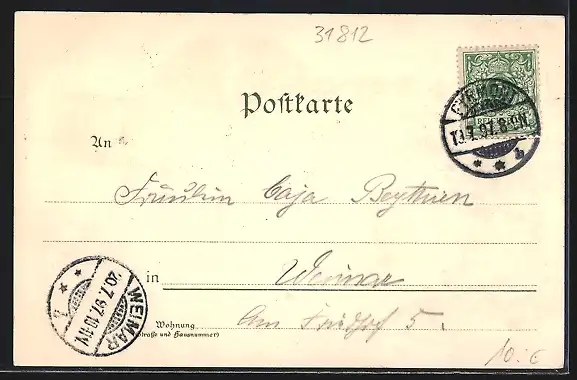 31812
Postkarte
PYRMONT
19.7.97. 8-9N.
An
Fräulein Caja Beythien
in Weimar
WEIMAR
20.7.97. 10-11V.
Wohnung
(Straße und Hausnummer)
Am Friedhof 5.
10.- €